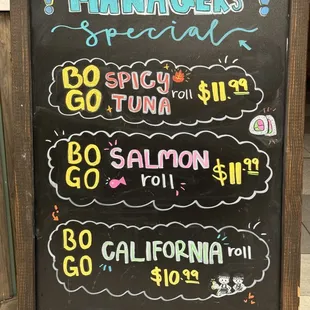 ! MANAGERS !
Special
BO GO SPICY TUNA roll $11.99
BO GO SALMON roll $11.99
BO GO CALIFORNIA roll $10.99